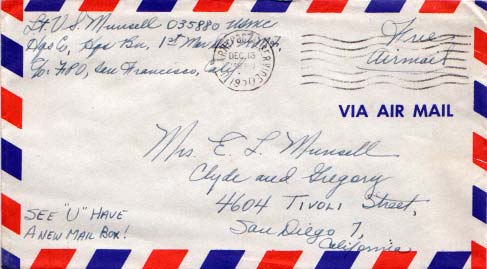 Lt. V S. Munsell 035880 USMC
Hqs Co, Hqs Bn, 1st
c/o FPO, San Francisco, Calif.
DEC 13
Free
Airmail
VIA AIR MAIL
Mrs. E. L. Munsell
Clyde and Gregory
4604 TIVOLI Street,
San Diego 7,
California
SEE "U" HAVE
A NEW MAIL BOX!